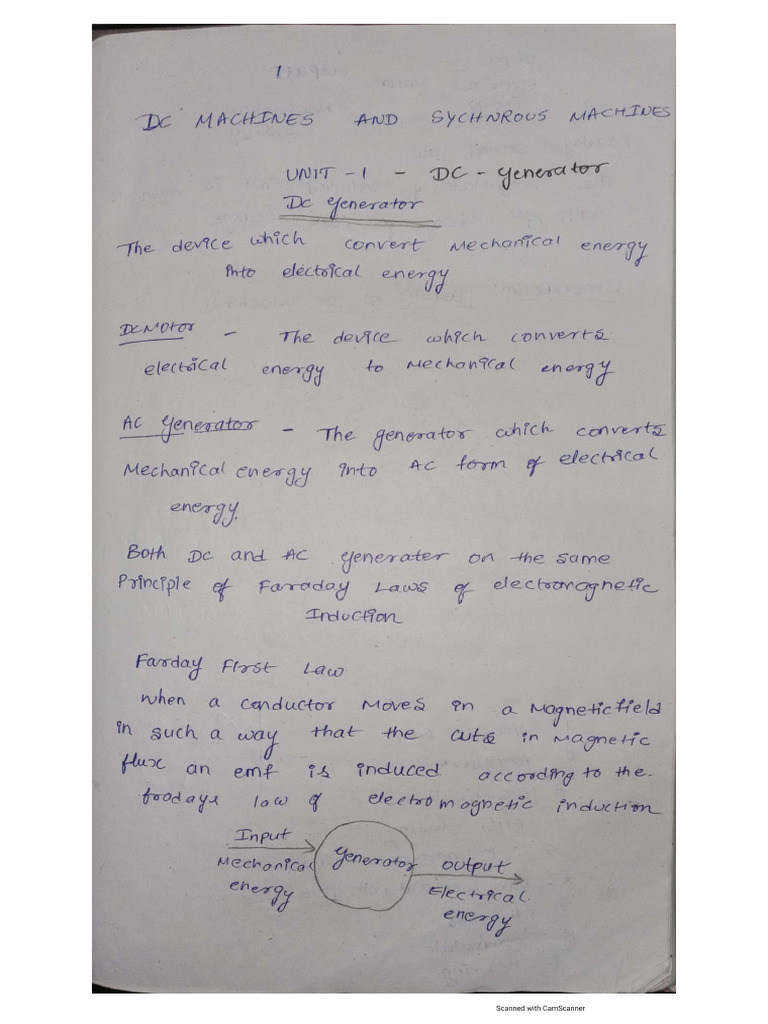 1
DC MACHINES AND SYCHNROUS MACHINES
UNIT -1 - DC - Generator
DC Generator
The device which convert Mechanical energy
into electrical energy
DC Motor - The device which converts
electrical energy to Mechanical energy
AC Generator - The generator which converts
Mechanical energy into AC form of electrical
energy.
Both DC and AC generater on the same
Principle of Faraday Laws of electromagnetic
Induction
Farday First Law
When a conductor moves in a Magnetic field
in such a way that the cuts in Magnetic
flux an emf is induced according to the
frodays law of electromagnetic induction
Input
Mechanical
energy
Generator
output
Electrical
energy
Scanned with CamScanner